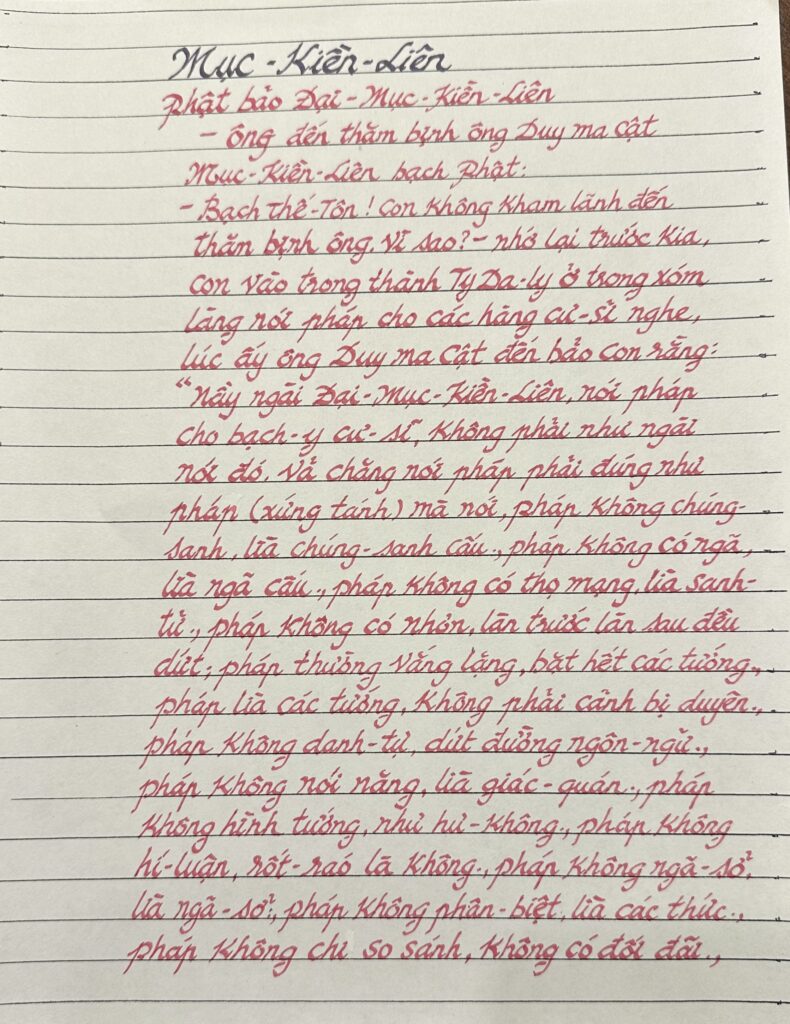 Mục-Kiền-Liên
Phật bảo Đại-Mục-Kiền-Liên
- Ông đến thăm bịnh ông Duy ma Cật
Mục-Kiền-Liên bạch Phật:
- Bạch Thế-Tôn! Con không kham lãnh đến
thăm bịnh ông. Vì sao? - nhớ lại trước kia,
con vào trong thành Tỳ Da-ly ở trong xóm
làng nói pháp cho các hàng cư-sĩ nghe,
lúc ấy ông Duy ma Cật đến bảo con rằng:
"Nầy ngài Đại-Mục-Kiền-Liên, nói pháp
cho bạch-y cư-sĩ, không phải như ngài
nói đó. Vả chăng nói pháp phải đúng như
pháp (xứng tánh) mà nói, pháp không chúng-
sanh, lìa chúng-sanh cấu., pháp không có ngã,
lìa ngã cấu., pháp không có thọ mạng, lìa sanh-
tử., pháp không có nhơn, làn trước làn sau đều
dứt; pháp thường vắng lặng, bặt hết các tướng.,
pháp lìa các tướng, không phải cảnh bị duyên.,
pháp không danh-tự, dứt đường ngôn-ngữ.,
pháp không nói năng, lìa giác-quán., pháp
không hình tướng, như hư-không., pháp không
hí-luận, rốt-ráo là không., pháp không ngã-sở,
lìa ngã-sở., pháp không phân-biệt, lìa các thức.,
pháp không chi so sánh, không có đối đãi.,